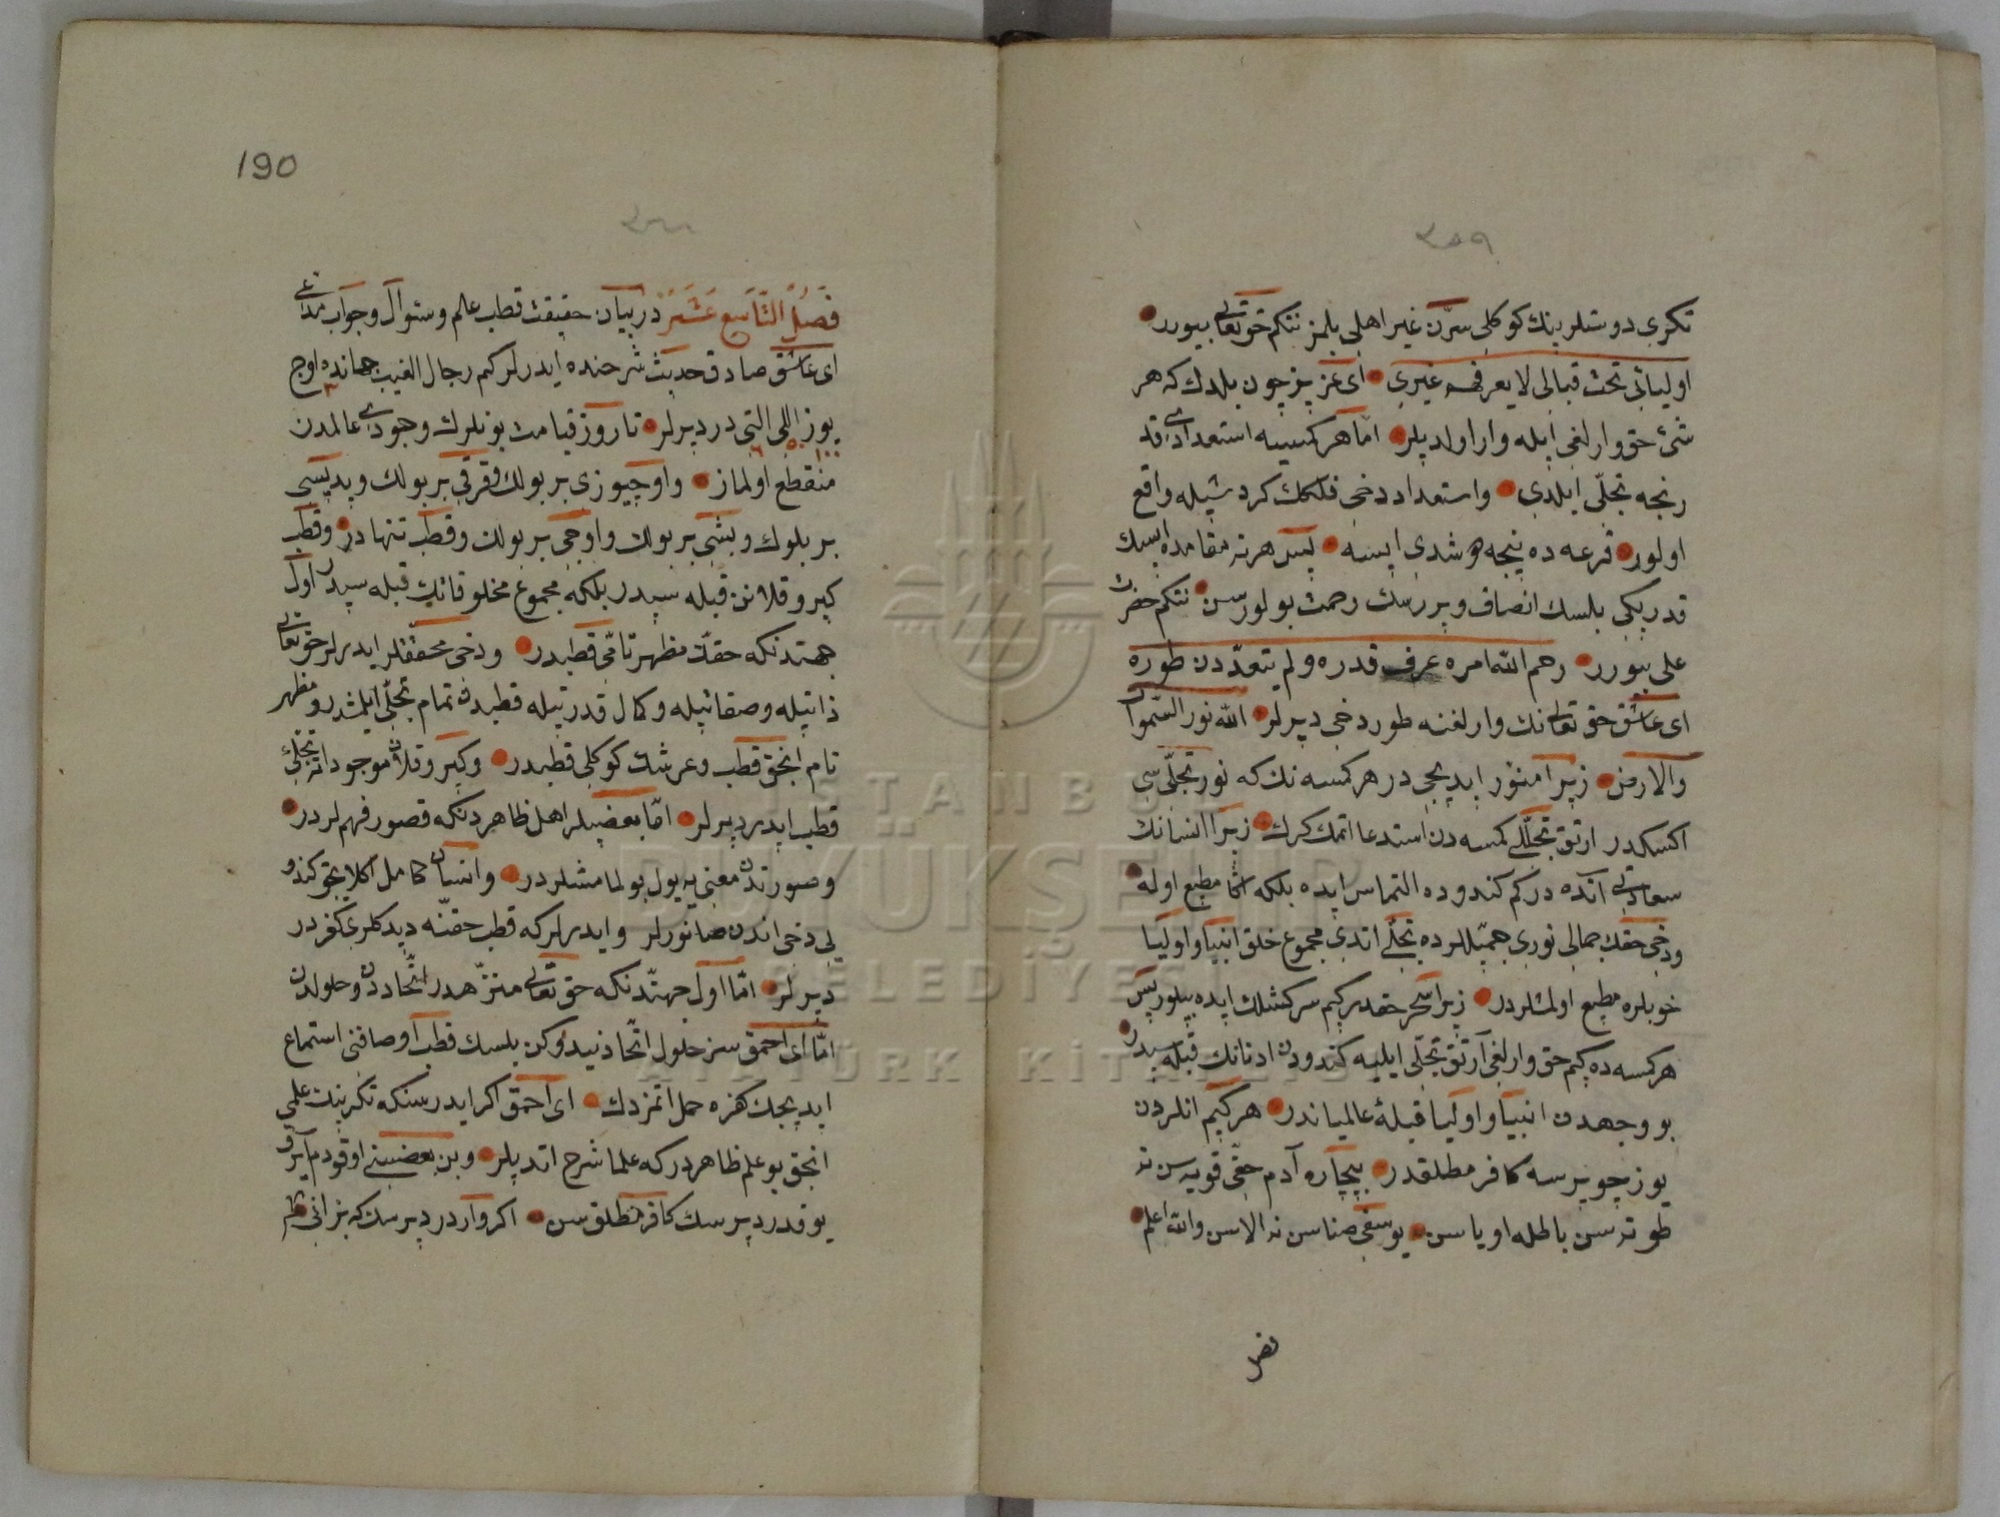 ٣٥٩
تكری دوستلرینك كوكلی سرّن غیر اهلی بلمز نتكم حق تعالی بیورر
اولیائی تحت قبابی لا یعرفهم غیری ای عزیز چون بلدك كه هر
شیء حق وارلغی ایله وار اولدیلر امّا هر كمسیه استعدادی قد
رنجه تجلّی ایلدی و استعداد دخی فلكك كردشیله واقع
اولور قرعه ده نیجه دوشدی ایسه پس هر نه مقامده ایسك
قدریكی بلسك انصاف ویررسك رحمت بولورسن نتكم حضرت
علی بیورر رحم الله امره عرف قدره و لم یتعدّدن طوره
ای عاشق حق تعالینك وارلغنه طور دخی دیرلر الله نور السّموات
والارض زیرا منوّر ایدیجی در هر كمسه نك كه نور تجلّی سی
اكسكدر ارتق تجلّلی كمسه دن استدعا اتمك كرك زیرا انسانك
سعادتی آنده در كم كندوده التماس ایده بلكه اكا مطیع اوله
ودخی حقك جمالی نوری جمیللرده تجلّی اتدی مجموع خلق انبیا و اولیا
خوبلره مطیع اولمشلردر زیرا سحر حقدر كیم سركشلك ایده بیلور پس
هر كمسه ده كیم حق وارلغی آرتق تجلّی ایلیه كندودن ادنانك قبله سیدر
بو وجهدن انبیا و اولیا قبلۀ عالمیاندر هر كیم انلردن
یوز چویرسه كافر مطلقدر بیچاره آدم حقّی قویه سن نه
طوته سن باطله اویاسن یوسفی صتاسن نه الاسن والله اعلم
فصل
190
٣٦٠
فصل التّاسع عشر در بیان حقیقت قطب عالم و سئوال و جواب مدّعی
ای عاشق صادق حدیث شرحنده ایدرلر كم رجال الغیب جهانده اوچ
یوز اللی التی در دیرلر تا روز قیامت بونلرك وجودی عالمدن
١٠٠ ٥٠ ٦ ٣
منقطع اولماز و اوچیوزی بر بولك و قرقی بر بولك و یدیسی
بر بلوك و بشی بر بولك و اوچی بر بولك و قطب تنهادر و قطب
كیر و قلانن قبله سیدر بلكه مجموع مخلوقاتك قبله سیدر اول
جهتدنكه حقك مظهر تامّی قطبدر ودخی محققلر ایدرلر حق تعالی
ذاتیله و صفاتیله و كمال قدرتیله قطبدن تمام تجلّی ایلمشدر و مظهر
تام انجق قطب و عرشك كوكلی قطبدر و كیرو قلان موجوداته تجلّی
قطب ایدر دیرلر امّا بعضیلر اهل ظاهردنكه قصور فهم لردر
و صورتدن معنی یه یول بولمامشلردر و انسان كامل اكلایجق كندو
لی دخی اندن صانورلر و ایدرلركه قطب حقنه دیدكلری كفردر
دیرلر امّا اول جهتدنكه حق تعالی منزّهدر اتّحاددن و حلولدن
امّا ای احمق سز حلول اتّحاد نیدوكن بلسك قطب اوصافنی استماع
ایدیجك كفره حمل اتمزدك ای احمق اكر ایدرسنكه تكرینك علمی
انجق بو علم ظاهردركه علما شرح اتدیلر وبن بعضیسنی اوقودم آیرق
یوقدر دیرسك كافر مطلق سن اكر واردر دیرسك كه بز انی